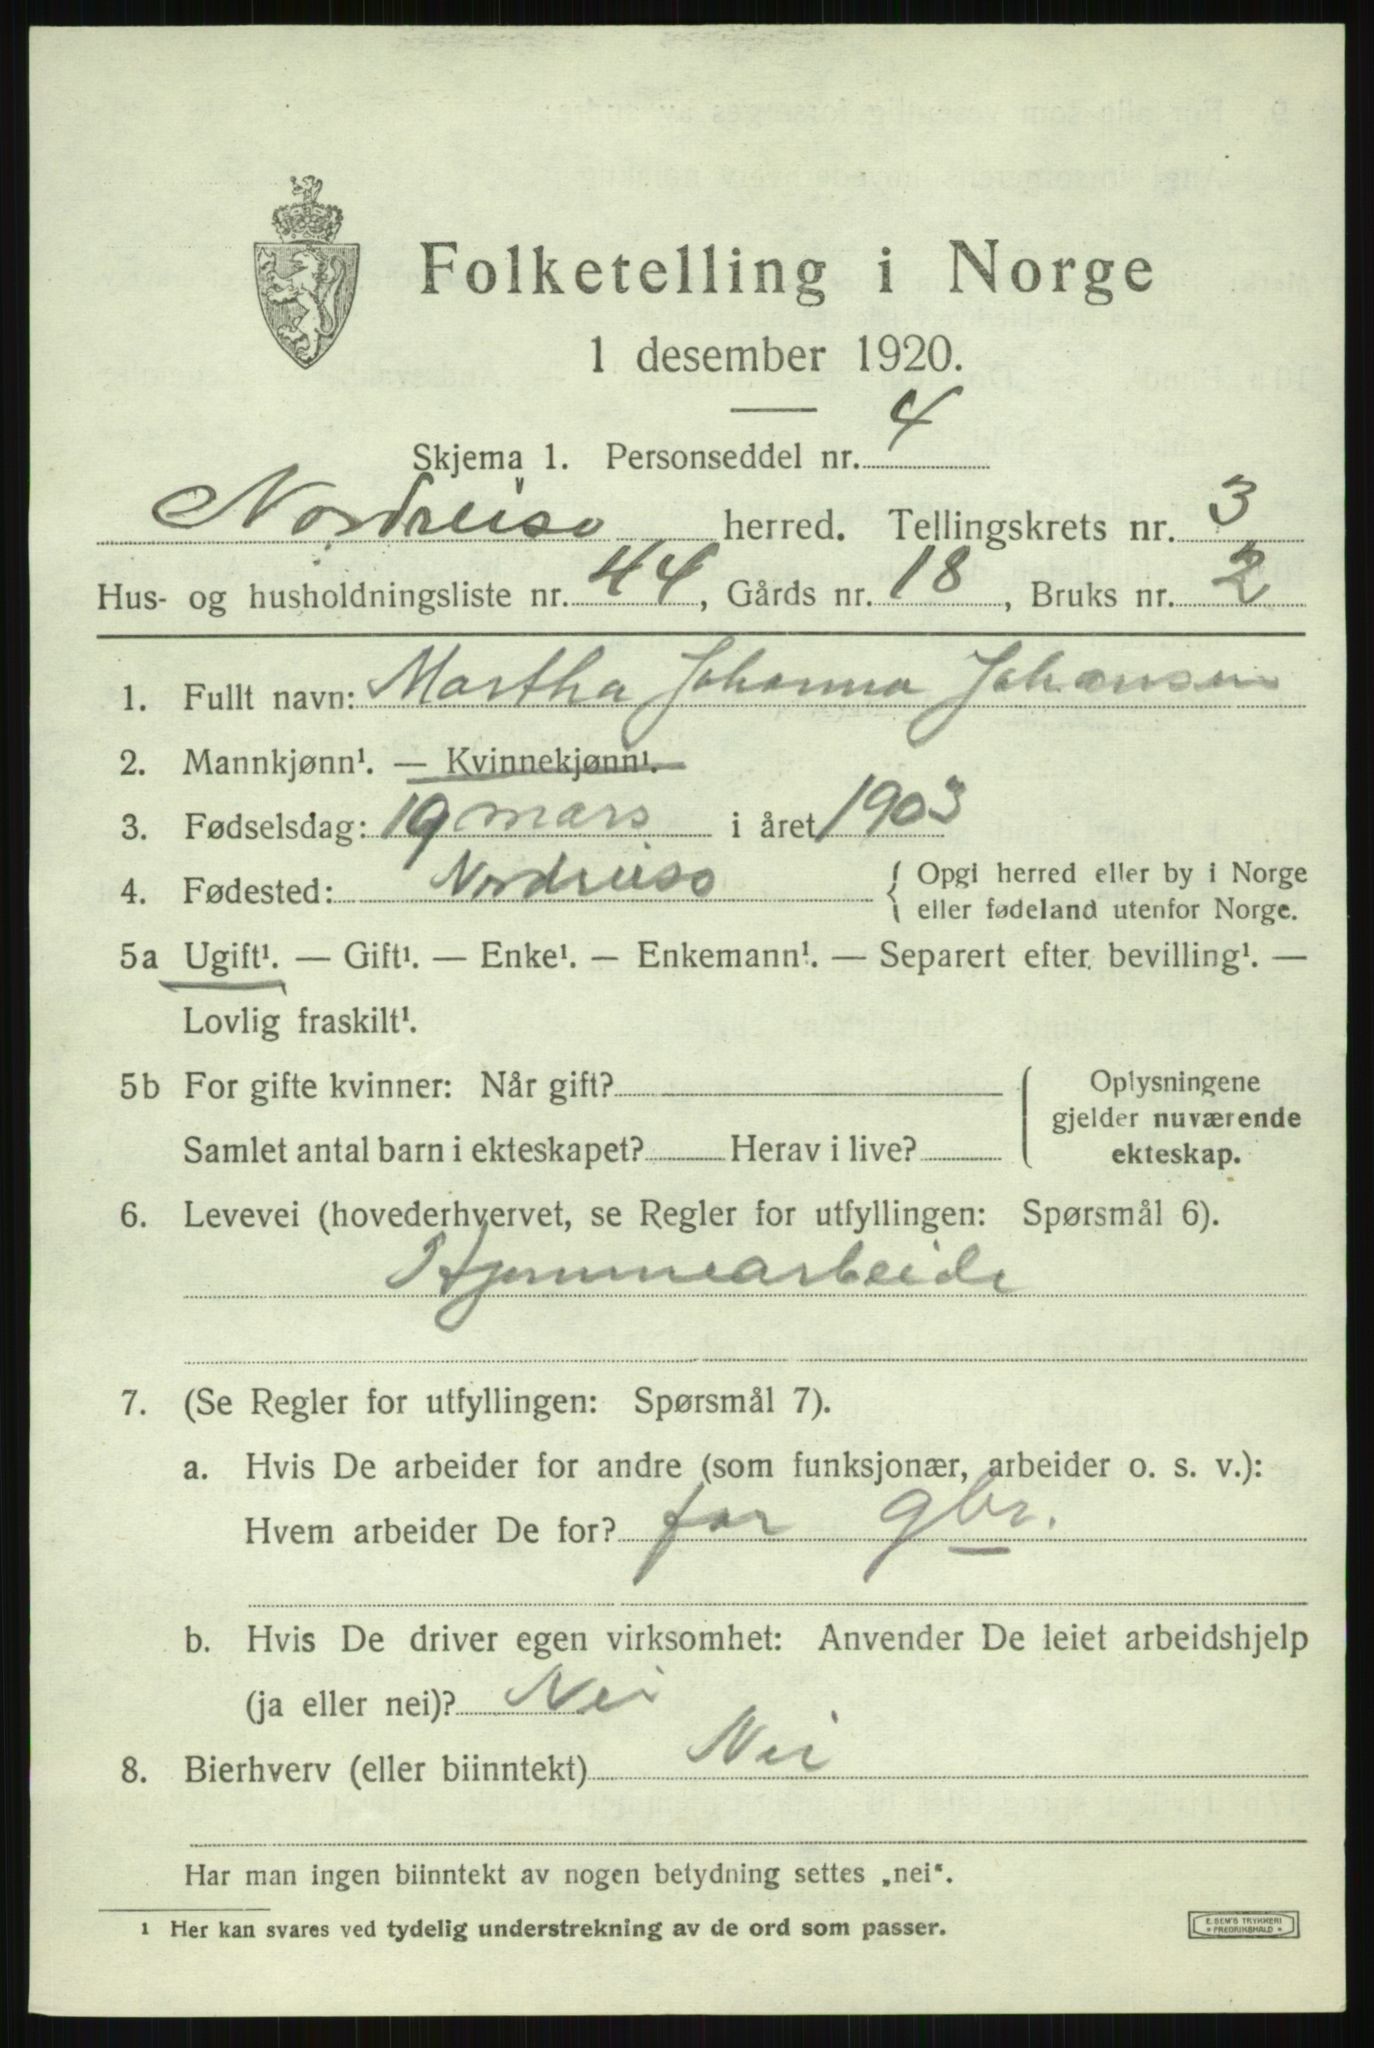 Folketelling i Norge
1 desember 1920.
Skjema 1. Personseddel nr. 4
Nordreisa herred. Tellingskrets nr. 3
Hus- og husholdningsliste nr. 44, Gårds nr. 18, Bruks nr. 2
1. Fullt navn: Martha Johanna Johansen
2. Mannkjønn¹. — Kvinnekjønn¹.
3. Fødselsdag: 19 mars i året 1903
4. Fødested: Nordreisa { Opgi herred eller by i Norge
eller fødeland utenfor Norge.
5a Ugift¹. — Gift¹. — Enke¹. — Enkemann¹. — Separert efter bevilling¹. —
Lovlig fraskilt¹.
5b For gifte kvinner: Når gift?
Samlet antal barn i ekteskapet? Herav i live?
Oplysningene
gjelder nuværende
ekteskap.
6. Levevei (hovederhvervet, se Regler for utfyllingen: Spørsmål 6).
Hjemmearbeide
7. (Se Regler for utfyllingen: Spørsmål 7).
a. Hvis De arbeider for andre (som funksjonær, arbeider o. s. v.):
Hvem arbeider De for? far gbr.
b. Hvis De driver egen virksomhet: Anvender De leiet arbeidshjelp
(ja eller nei)? Nei
8. Bierhverv (eller biinntekt) Nei
Har man ingen biinntekt av nogen betydning settes „nei“.
¹ Her kan svares ved tydelig understrekning av de ord som passer.
E. SEM'S TRYKKERI
* FREDRIKSHALD *